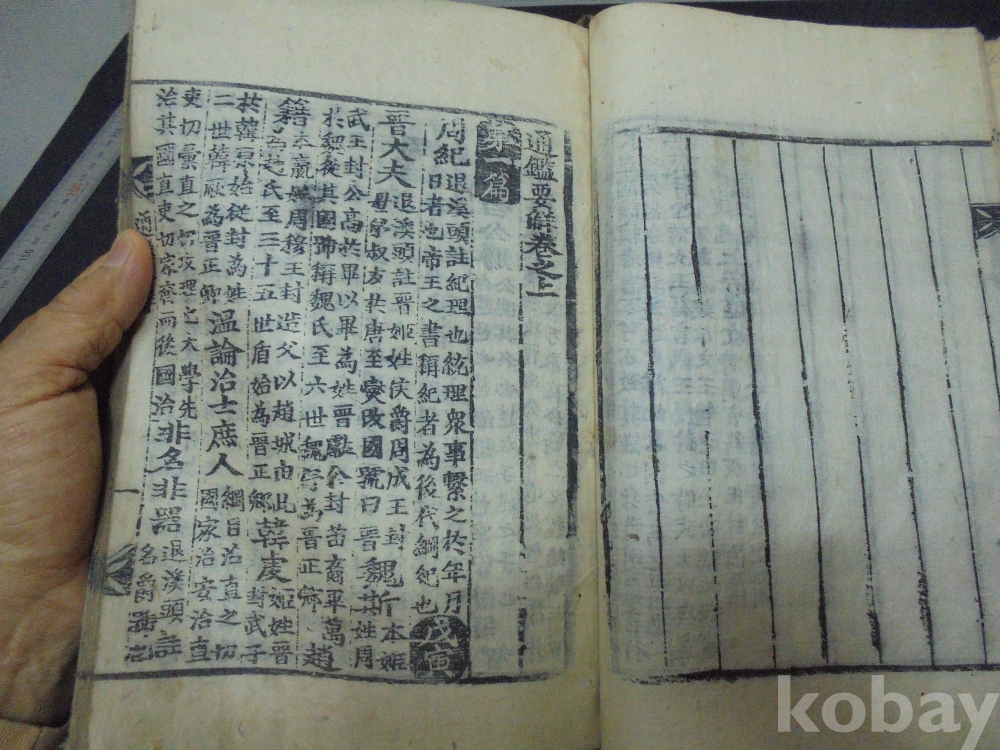 通鑑要解卷之上
第一篇
周紀退溪頭註紀理也統理眾事繫之於年月
日者也帝王之書稱紀者為後代綱紀也戊寅
晋大夫退溪頭註晋姬姓侯爵周成王封
弟叔友於唐至燮改國號曰晋魏斯本姬姓周
武王封公高於畢以畢為姓晋獻公封苗裔畢萬
於魏後其國號稱魏氏至六世魏為晋正卿趙
籍本嬴姓周穆王封造父以趙城由此
為趙氏至三十五世盾始為晋正卿韓虔姬姓晋封武子
於韓原始從封為姓
二世韓厥為晋正卿溫論治士庶人綱目治直之切
國家治安治直
吏切彙直之切攻理也大學先
治其國直吏切家齊而後國治非名非器退溪頭註
名爵
一
kobay